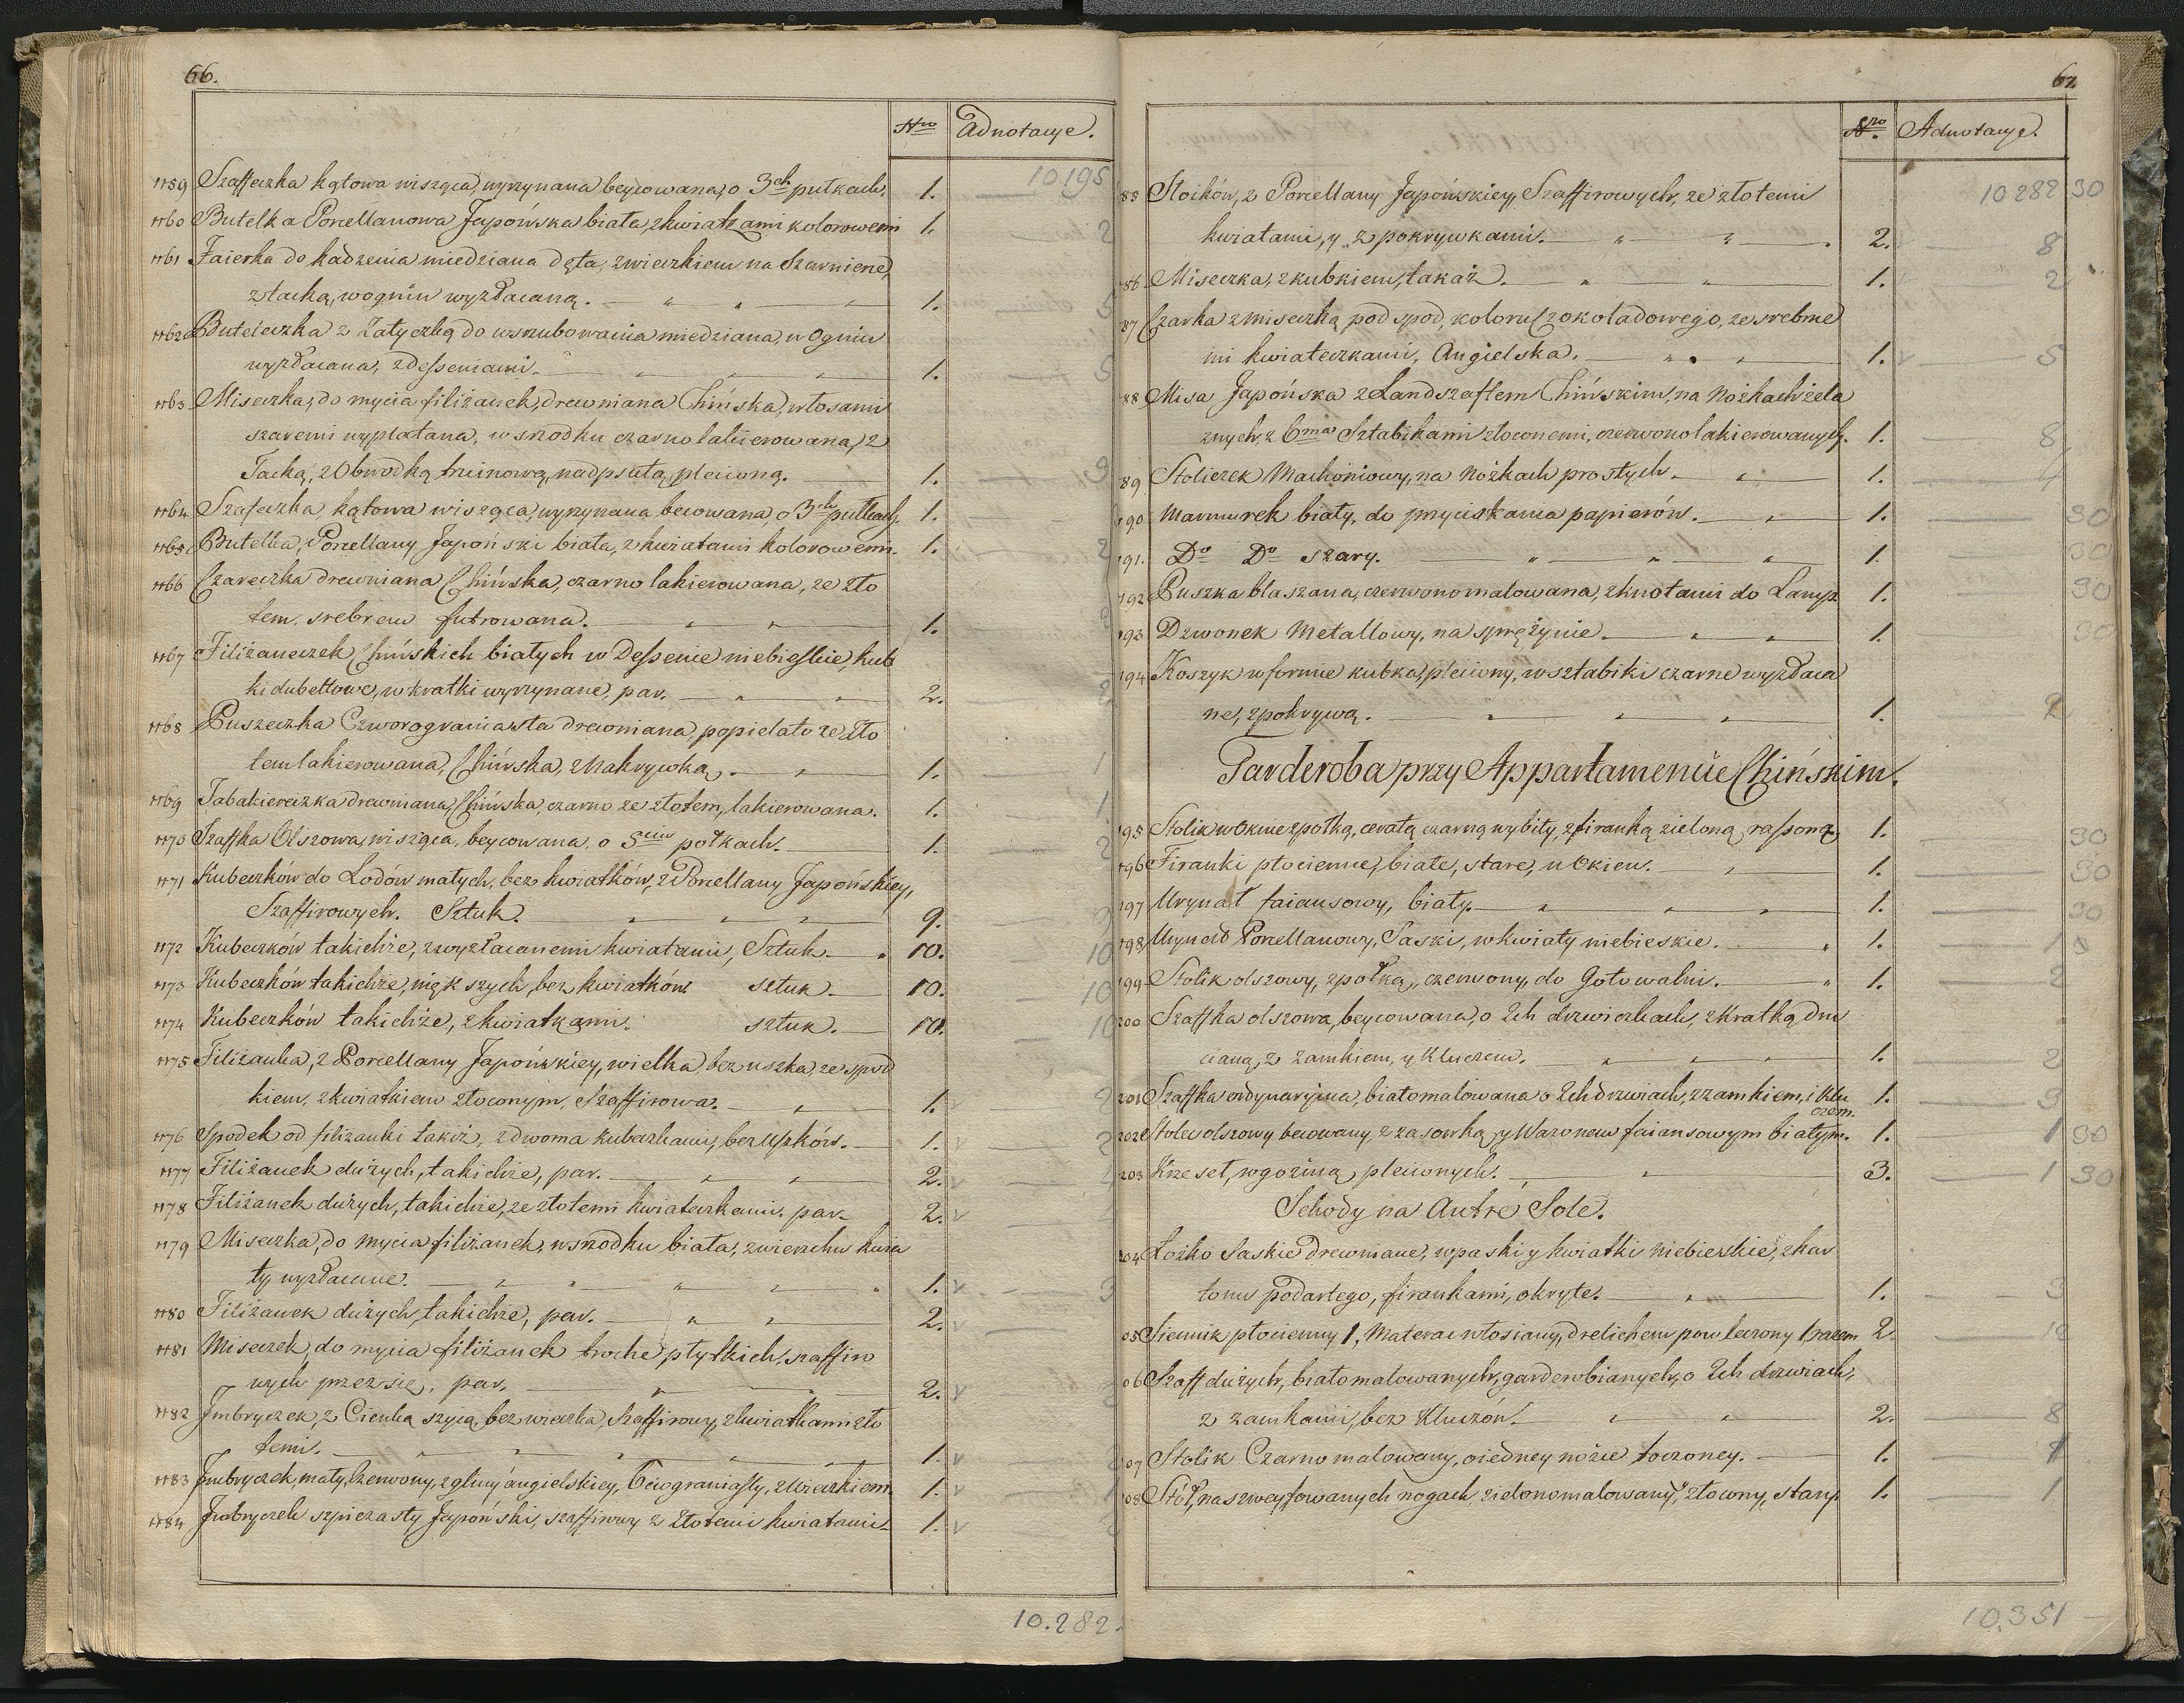 66.
Nro Adnotacye.
10195
1159 Szaffeczka kątowa wisząca, wyrzynana beycowana, o 3ch pułkach. 1.
1160 Butelka Porcellanowa Japońska biała, z kwiatkami kolorowemi 1. 2
1161 Faierka do kadzenia miedziana dęta, z wieczkiem na Szarniere,
z tacką, w ogniu wyzłacaną. 1. 5
1162 Buteleczka z Zatyczką do wszrubowania miedziana, w Ogniu
wyzłacana, z desseniami. 1. 5
1163 Miseczka, do mycia filiżanek, drewniana Chińska, włosami
szaremi wyplatana, w srzodku czarno lakierowana, z
Tacką, z Obwodką trzinową, nadpsutą, plecioną. 1. 9
1164 Szafeczka, kątowa wisząca, wyrzynana becowana, o 3ch pułkach. 1.
1165 Butelka, Porcellany Japoński biała, z kwiatami kolorowemi. 1. 2
1166 Czareczka drewniana Chińska, czarno lakierowana, ze zło
tem, srebrem futrowana. 1.
1167 Filiżaneczek Chińskich białych w Dessenie niebieskie, kub
ki dubeltowe, w kratki wyrzynane, par. 2. 2
1168 Puszeczka Czworograniasta drewniana, popielato ze Zło
tem lakierowana, Chińska, z Nakrywką. 1. 1
1169 Tabakiereczka drewniana, Chińska, czarno ze złotem, lakierowana. 1. 1
1170 Szaffka Olszowa, wisząca, beycowana, o 5ciu połkach. 1. 2
1171 Kubeczków do Lodów małych, bez kwiatków, z Porcellany Japońskiey,
Szaffirowych. Sztuk. 9. 9
1172 Kubeczków takichże, z wyzłacanemi kwiatami, Sztuk. 10. 10
1173 Kubeczków takichże, większych, bez kwiatków sztuk. 10. 10
1174 Kubeczków takichże, z kwiatkami. sztuk. 10. 10
1175 Filiżanka, z Porcellany Japońskiey, wielka, bez uszka, ze spod
kiem, z kwiatkiem złoconym, Szaffirowa. 1. 2
1176 Spodek od filiżanki takiż, z dwoma kubeczkami, bez uszków. 1. 2
1177 Filiżanek dużych, takichże, par. 2.
1178 Filiżanek dużych, takichże, ze złotemi kwiateczkami, par. 2.
1179 Miseczka, do mycia filiżanek, w srzodku biała, z wierzchu kwia
ty wyzłacane. 1. 3
1180 Filiżanek dużych, takichże, par. 2.
1181 Miseczek, do mycia filiżanek troche płytkich, szaffiro
wych przez się, par. 2.
1182 Jmbryczek, z Cienką szyią, bez wieczka, Szaffirowy, z kwiatkami zło
temi. 1.
1183 Jmbryczek, mały, Czerwony, z gliny angielskiey, 6ciograniasty, z Wieczkiem. 1. 1
1184 Jmbryczek szpiczasty Japoński, szaffirowy z Złotemi kwiatami. 1. 2
10.282.
67.
Nro. Adnotacye.
10282 30
85 Słoików, z Porcellany Japońskiey, Szaffirowych, ze złotemi
kwiatami, y z pokrywkami. 2. 8
86 Miseczka, z kubkiem, takaż. 1. 2
87 Czarka z miseczką pod spod, koloru Czokoladowego, ze srebrne
mi kwiateczkami, Angielska. 1. 5
88 Misa Japońska z Landszaftem Chińskim, na Nożkach żela
znych, z 6ma Sztabikami złoconemi, czerwono lakierowanych. 1. 8
89 Stoliczek Machoniowy, na Nożkach prostych. 1. 4
190 Marmurek biały, do przyciskania papierów. 1. 30
191. Do Do szary. 1. 30
192 Puszka blaszana, czerwono malowana, z knotami do Lamp 1. 30
193 Dzwonek Metallowy, na sprężynie. 1. 30
194 Koszyk w formie kubka, pleciony, w sztabiki czarne wyzłaca
ne, z pokrywą. 1. 2
Garderoba przy Appartamencie Chińskim.
195 Stolik w Oknie z połką, ceratą czarną wybity, z firanką zieloną, rassową 1. 30
196 Firanki płocienne, białe, stare, u Okien. 1. 30
197 Urynał faiansowy, biały. 1. 30
198 Urynał Porcellanowy, Saski, w kwiaty niebieskie. 1. 1
199 Stolik olszowy, z połką, czerwony, do Gotowalni. 1. 2
200 Szaffka olszowa, beycowana, o 2ch drzwiczkach, z kratką Dru
cianą, z zamkiem, y Kluczem. 1. 2
201 Szaffka ordynaryina, biało malowana o 2ch drzwiach, z zamkiem, i Klu
czem. 1. 3
202 Stolec olszowy becowany z zasowką, y Wazonem faiansowym białym. 1. 1 30
203 Krzeseł, rogoziną plecionych. 3. 1 30
Schody na Autre Sole.
204 Łożko Saskie drewniane, w paski y kwiatki niebieskie, z kar
tonu podartego, firankami, okryte. 1. 3
05 Siennik płocienny 1, Materac włosiany, drelichem powleczony 1, razem 2. 12
06 Szaff dużych, biało malowanych, garderobianych, o 2ch drzwiach,
z zamkami, bez Kluczów. 2. 8
07 Stolik Czarno malowany, o iedney nożie toczoney. 1. 1
08 Stół, na szweyfowanych nogach zielono malowany, złocony, stary. 1. 1
10.351